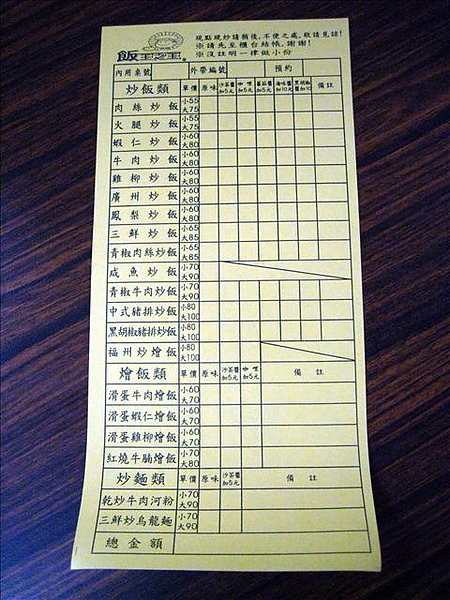 飯王之王
現點現炒請稍後,不便之處,敬請見諒!
※請先至櫃台結帳,謝謝!
※沒註明一律做小份
內用桌號 外帶編號 預約
炒飯類 單價 原味 沙茶醬加5元 咖哩加5元 蕃茄醬加5元 海味醬加10元 黑胡椒醬加10 備註
肉絲炒飯 小55 大75
火腿炒飯 小55 大75
蝦仁炒飯 小60 大80
牛肉炒飯 小60 大80
雞柳炒飯 小60 大80
廣州炒飯 小60 大80
鳳梨炒飯 小60 大80
三鮮炒飯 小65 大85
青椒肉絲炒飯 小65 大85
咸魚炒飯 小70 大90
青椒牛肉炒飯 小70 大90
中式豬排炒飯 小80 大100
黑胡椒豬排炒飯 小80 大100
福州炒燴飯 小80 大100
燴飯類 單價 原味 沙茶醬加5元 咖哩加5元 備註
滑蛋牛肉燴飯 小60 大70
滑蛋蝦仁燴飯 小60 大70
滑蛋雞柳燴飯 小60 大70
紅燒牛腩燴飯 小70 大80
炒麵類 單價 原味 沙茶醬加5元 備註
乾炒牛肉河粉 小70 大90
三鮮炒烏龍麵 小70 大90
總金額